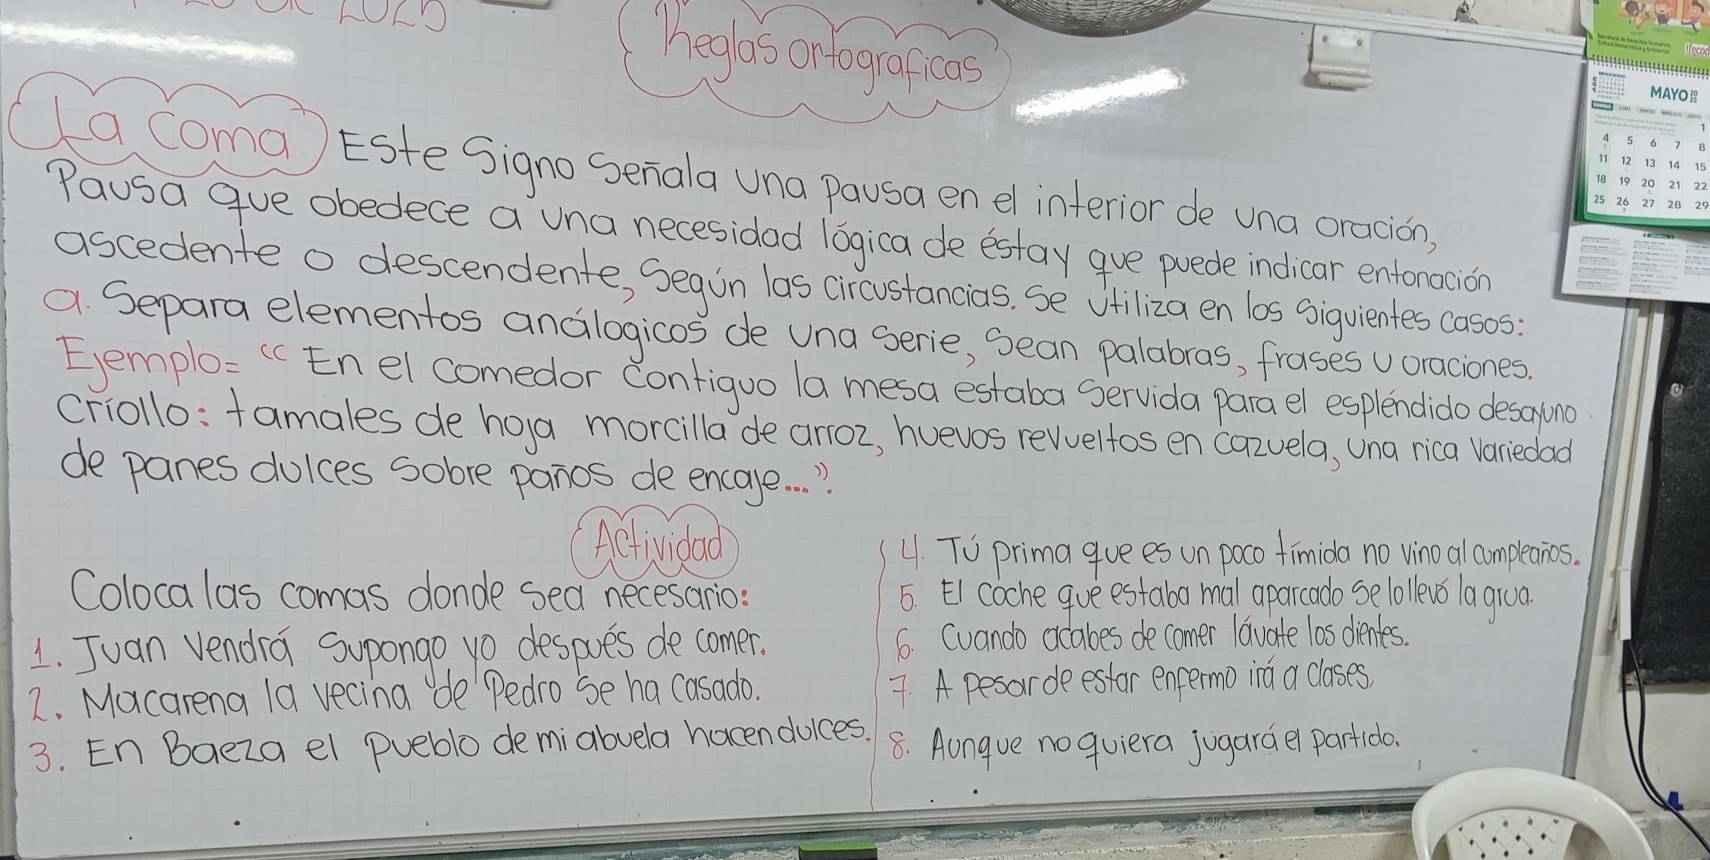 Reglas ortograficas
La coma Este signo señala una pausa en el interior de una oración,
Pausa que obedece a una necesidad lógica de ésta y que puede indicar entonación
ascedente o descendente, Según las circustancias. Se Utiliza en los siguientes casos:
a. Separa elementos análogicos de una serie, Sean palabras, frases u oraciones.
Ejemplo= "En el comedor contiguo la mesa estaba servida para el espléndido desayuno
criollo: tamales de hoja morcilla de arroz, huevos revueltos en cazuela, una rica variedad
de panes dulces sobre paños de encaje...".
Actividad
Coloca las comas donde sea necesario:
1. Juan vendrá supongo yo después de comer.
2. Macarena la vecina de Pedro se ha casado.
3. En Baeza el pueblo de mi abuela hacen dulces.
4. Tú prima que es un poco tímida no vino al cumpleaños.
5. El coche que estaba mal aparcado se lo llevó la grua.
6. Cuando acabes de comer lávate los dientes.
7. A pesar de estar enfermo irá a clases.
8. Aunque no quiera jugará el partido.
MAYO 2025
1
4 5 6 7 8
11 12 13 14 15
18 19 20 21 22
25 26 27 28 29